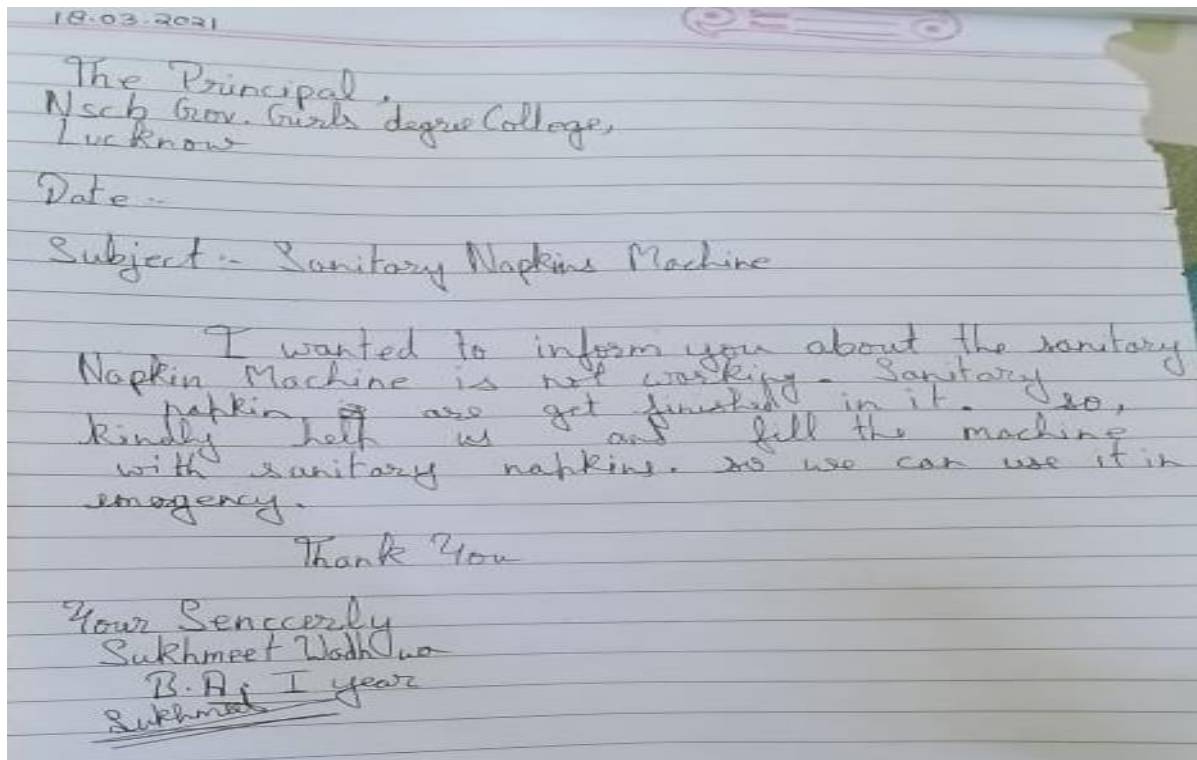 18.03.2021
The Principal,
Nscb Gov. Girls degree College,
Lucknow
Date :-
Subject :- Sanitary Napkins Machine
I wanted to inform you about the sanitary
Napkin Machine is not working. Sanitary
napkin are get finished in it. so,
kindly help us and fill the machine
with sanitary napkins. so we can use it in
emergency.
Thank You
Your Senccerly
Sukhmeet Wadhwa
B.A, I year
Sukhmeet